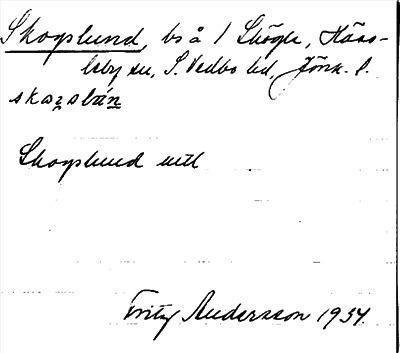 Skogslund, bs å 1 Skögle, Häss-
leby sn, S. Vedbo hd, Jönk. l.
skogslún
Skogslund uttl
Fritz Andersson 1934.